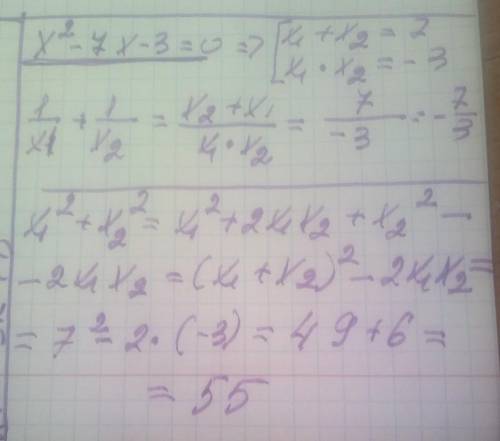 x² - 7x - 3 = 0 => [x₁ + x₂ = 7
x₁ · x₂ = -3
1/x₁ + 1/x₂ = (x₂ + x₁)/(x₁ · x₂) = 7/(-3) = -7/3
x₁² + x₂² = x₁² + 2x₁x₂ + x₂² -
- 2x₁x₂ = (x₁ + x₂)² - 2x₁x₂ =
= 7² - 2 · (-3) = 49 + 6 =
= 55